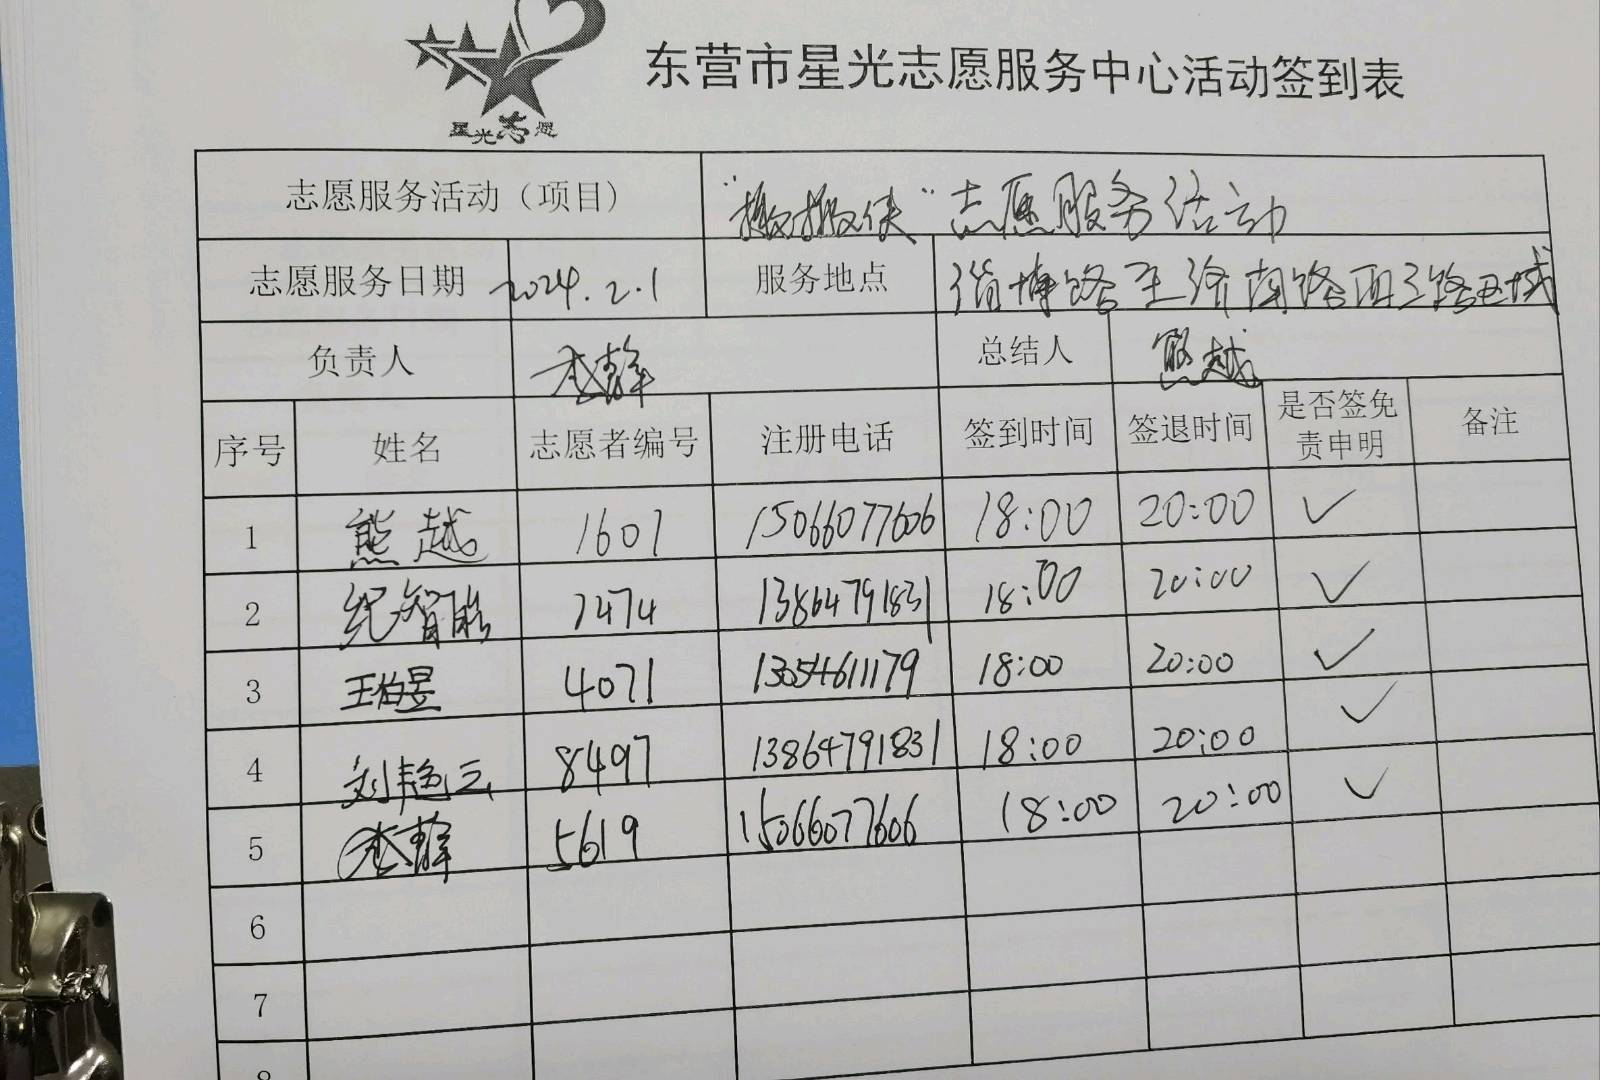 星光志愿
东营市星光志愿服务中心活动签到表
志愿服务活动（项目） "搬搬侠"志愿服务活动
志愿服务日期 2024.2.1 服务地点 淄博路至济南路西三路区域
负责人 李静 总结人 熊越
序号 姓名 志愿者编号 注册电话 签到时间 签退时间 是否签免责申明 备注
1 熊越 1607 15066077606 18:00 20:00 ✓
2 纪智皓 7474 13864791831 18:00 20:00 ✓
3 王怡昱 4071 13054611179 18:00 20:00 ✓
4 刘艳云 8497 13864791831 18:00 20:00 ✓
5 李静 5619 15066077606 18:00 20:00 ✓
6
7
8